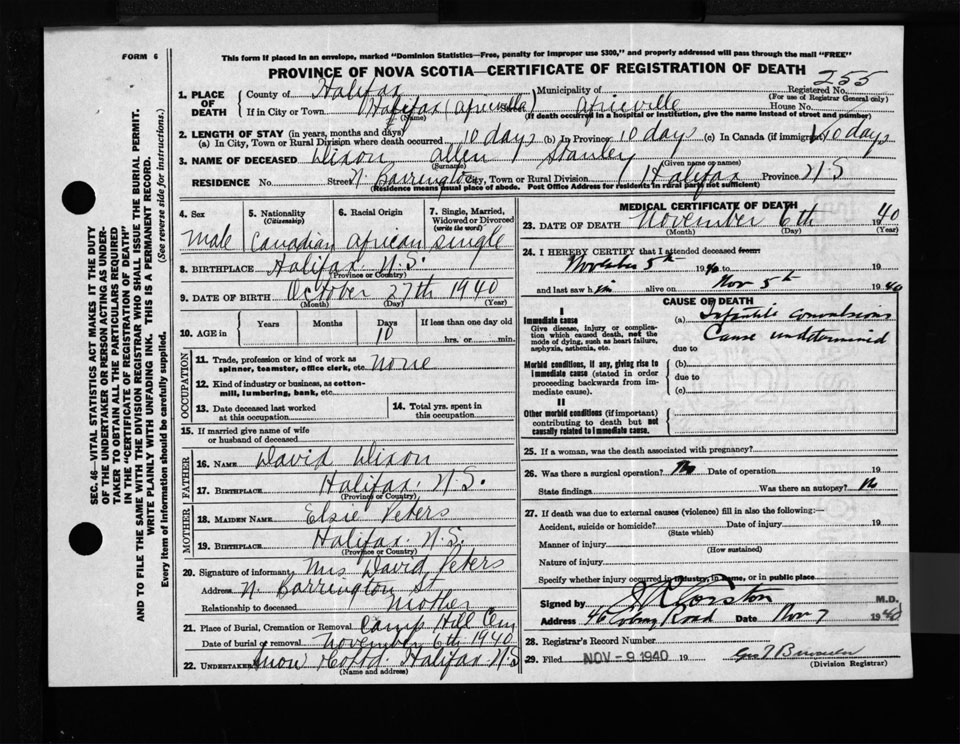 FORM 6
This form if placed in an envelope, marked "Dominion Statistics—Free, penalty for improper use $300," and properly addressed will pass through the mail "FREE"
PROVINCE OF NOVA SCOTIA—CERTIFICATE OF REGISTRATION OF DEATH
255
1. PLACE OF DEATH
County of Halifax Municipality of Registered No.
(For use of Registrar General only)
If in City or Town Halifax (Africville) Africville House No.
(Name) (If death occurred in a hospital or institution, give the name instead of street and number)
2. LENGTH OF STAY (in years, months and days)
(a) In City, Town or Rural Division where death occurred 10 days (b) In Province 10 days (c) In Canada (if immigrant) 10 days
3. NAME OF DECEASED Dixon, Allen Stanley
(Surname) (Given name or names)
RESIDENCE No. Street N. Barrington City, Town or Rural Division Halifax Province N.S
(Residence means usual place of abode. Post Office Address for residents in rural parts not sufficient)
4. Sex
Male
5. Nationality
(Citizenship)
Canadian
6. Racial Origin
African
7. Single, Married, Widowed or Divorced
(write the word)
Single
8. BIRTHPLACE Halifax N.S.
(Province or Country)
9. DATE OF BIRTH October 27th 1940
(Month) (Day) (Year)
10. AGE in Years Months Days If less than one day old
10 hrs. or min.
OCCUPATION
11. Trade, profession or kind of work as spinner, teamster, office clerk, etc. None
12. Kind of industry or business, as cotton-mill, lumbering, bank, etc.
13. Date deceased last worked at this occupation
14. Total yrs. spent in this occupation
15. If married give name of wife or husband of deceased
FATHER
16. NAME David Dixon
17. BIRTHPLACE Halifax. N.S.
(Province or Country)
MOTHER
18. MAIDEN NAME Elsie Peters
19. BIRTHPLACE Halifax. N.S.
(Province or Country)
20. Signature of informant Mrs David Peters
Address N. Barrington St
Relationship to deceased Mother
21. Place of Burial, Cremation or Removal Camp Hill Cem
Date of burial or removal November 6th 1940
22. UNDERTAKER Snow Co Ltd. Halifax N.S
(Name and address)
MEDICAL CERTIFICATE OF DEATH
23. DATE OF DEATH November 6th 1940
(Month) (Day) (Year)
24. I HEREBY CERTIFY that I attended deceased from:
November 5th 1940 to 19
and last saw him alive on Nov 5th 1940
CAUSE OF DEATH
I
Immediate cause
Give disease, injury or complication which caused death, not the mode of dying, such as heart failure, asphyxia, asthenia, etc.
(a) Infantile convulsions
Cause undetermined
due to
Morbid conditions, if any, giving rise to immediate cause (stated in order proceeding backwards from immediate cause).
(b)
due to
(c)
II
Other morbid conditions (if important) contributing to death but not causally related to immediate cause.
25. If a woman, was the death associated with pregnancy?
26. Was there a surgical operation? No Date of operation 19
State findings Was there an autopsy? No
27. If death was due to external causes (violence) fill in also the following:—
Accident, suicide or homicide? Date of injury 19
(State which)
Manner of injury
(How sustained)
Nature of injury
Specify whether injury occurred in industry, in home, or in public place
Signed by M.D.
Address 46 Coburg Road Date Nov 7 1940
28. Registrar's Record Number
29. Filed NOV -9 1940 19
(Division Registrar)
SEC. 46—VITAL STATISTICS ACT MAKES IT THE DUTY
OF THE UNDERTAKER OR PERSON ACTING AS UNDER-
TAKER TO OBTAIN ALL THE PARTICULARS REQUIRED
IN THE "CERTIFICATE OF REGISTRATION OF DEATH"
AND TO FILE THE SAME WITH THE DIVISION REGISTRAR WHO SHALL ISSUE THE BURIAL PERMIT.
WRITE PLAINLY WITH UNFADING INK. THIS IS A PERMANENT RECORD.
Every item of information should be carefully supplied. (See reverse side for instructions.)